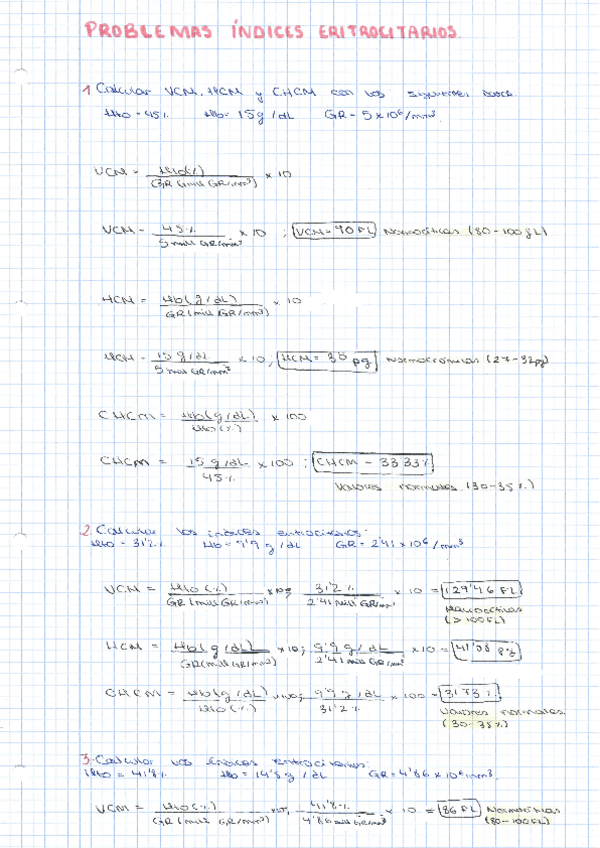 PROBLEMAS ÍNDICES ERITROCITARIOS
1 Calcular VCM, HCM y CHCM con los siguientes datos
Hto = 45% Hb = 15g/dL GR = 5 x 10⁶/mm³
VCM = Hto(%) / GR (mill GR/mm³) x 10
VCM = 45% / 5 mill GR/mm³ x 10 ; VCM = 90 FL Normocíticas (80-100 fL)
HCM = Hb(g/dL) / GR (mill GR/mm³) x 10
HCM = 15 g/dL / 5 mill GR/mm³ x 10 ; HCM = 30 pg Normocrómicas (27-32pg)
CHCM = Hb(g/dL) / Hto(%) x 100
CHCM = 15 g/dL / 45% x 100 ; CHCM = 33'33%
Valores normales (30-35%)
2. Calcular los índices eritrocitarios:
Hto = 31'2% Hb = 9'9 g/dL GR = 2'41 x 10⁶/mm³
VCM = Hto(%) / GR (mill GR/mm³) x 10; 31'2% / 2'41 mill GR/mm³ x 10 = 129'46 FL
Macrocíticas
(>100 FL)
HCM = Hb(g/dL) / GR (mill GR/mm³) x 10; 9'9 g/dL / 2'41 mill GR/mm³ x 10 = 41'08 pg
CHCM = Hb(g/dL) / Hto(%) x 100; 9'9 g/dL / 31'2% x 100 = 31'73%
Valores normales
(30-35%)
3. Calcular los índices eritrocitarios:
Hto = 41'8% Hb = 14'5 g/dL GR = 4'86 x 10⁶ mm³.
VCM = Hto(%) / GR (mill GR/mm³) x 10; 41'8% / 4'86 mill GR/mm³ x 10 = 86 FL Normocíticas
(80-100FL)